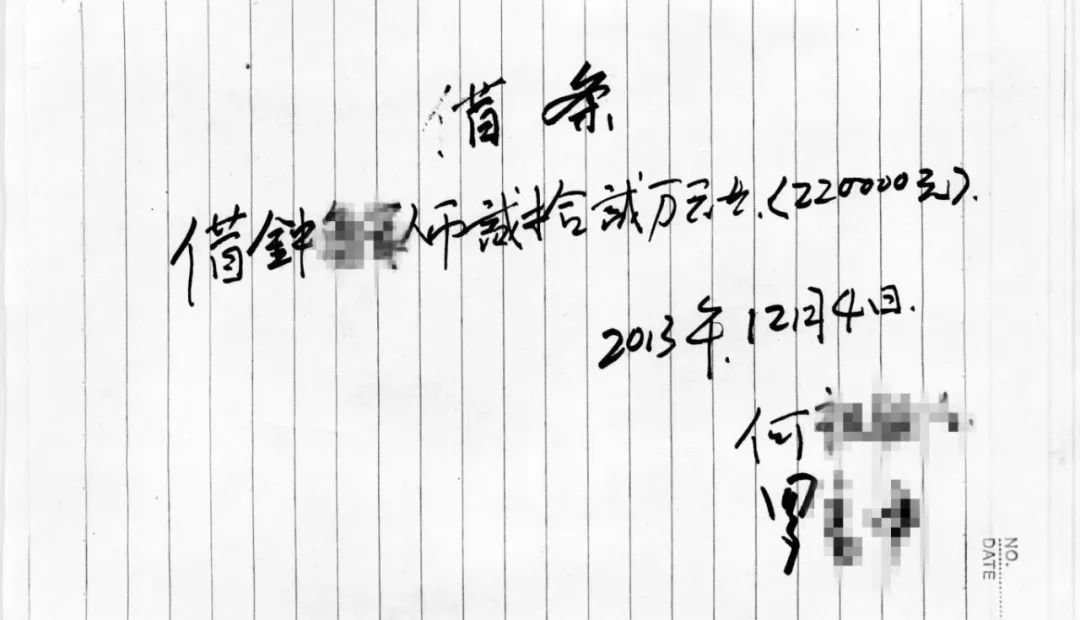 借条
借钟 人币贰拾贰万元正.(220000元).
2013年.12月4日.
何
罗
NO.
DATE